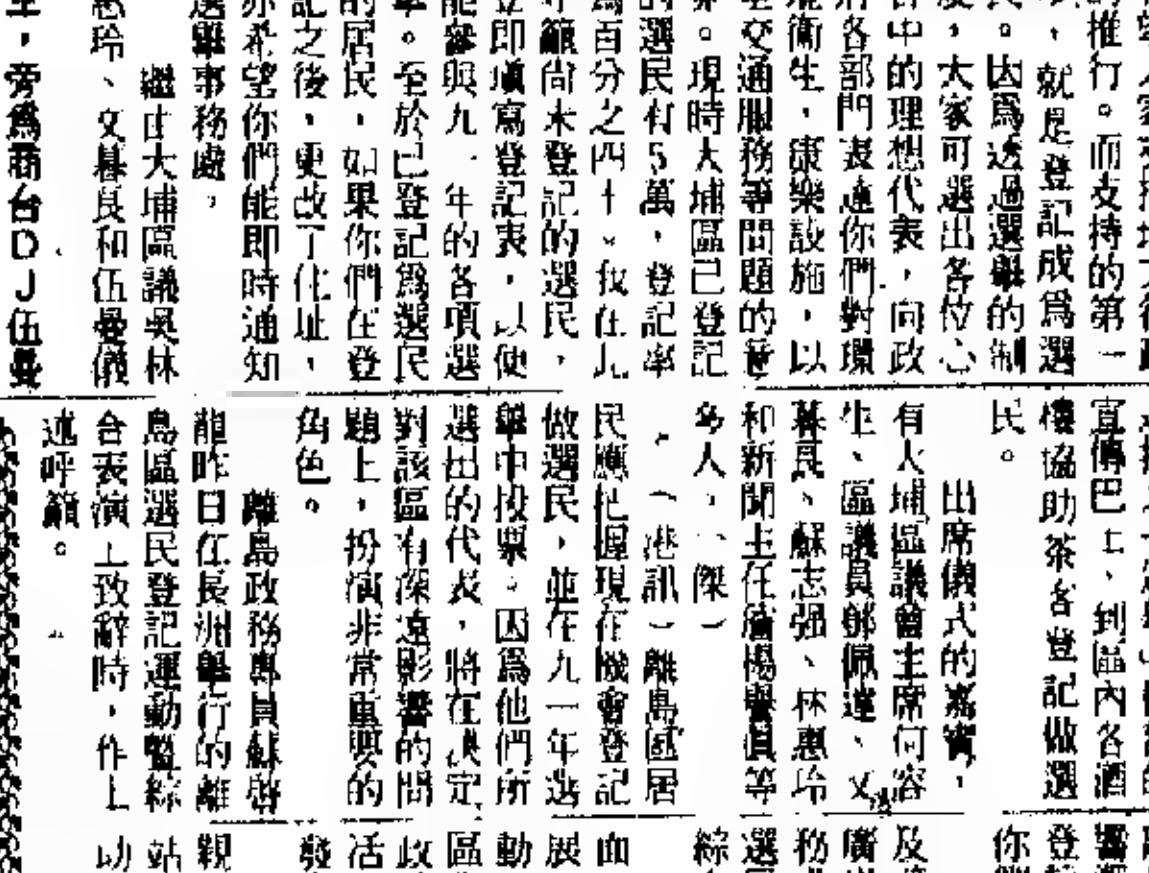 的推行。而支持的第一
，就是登記成爲選
民。因爲透過選舉的制
度，大家可選出各位心
中的理想代表，向政
府各部門表達你們對環
衛生，康樂設施，以
至交通服務等問題的意
。現時大埔區已登記
的選民有5萬，登記率
爲百分之四十。我在此
籲尚未登記的選民，
立即填寫登記表，以便
能參與九一年的各項選
舉。至於已登記爲選民
的居民，如果你們在登
記之後，更改了住址，
亦希望你們能即時通知
選舉事務處。
繼由大埔區議吳林
惠玲、文暮良和伍曼儀
主，旁爲商台DJ伍曼
宣傳巴士、到區內各酒
樓協助茶客登記做選
民。
出席儀式的嘉賓，
有大埔區議會主席何容
生、區議員鄧佩、文
暮良、蘇志强、林惠玲
和新聞主任楊等
多人。（傑）
（港訊）離島區居
民應把握現在機會登記
做選民，並在九一年選
舉中投票。因爲他們所
選出的代表，將在決定
對該區有深遠影響的問
題上，扮演非常重要的
角色。
離島政務專員蘇啓
龍昨日在長洲舉行的離
島區選民登記運動暨綜
合表演上致辭時，作上
述呼籲。
響
登
你
及
廣
務
選
綜
面
展
動
區
政
活
發
親
站
助